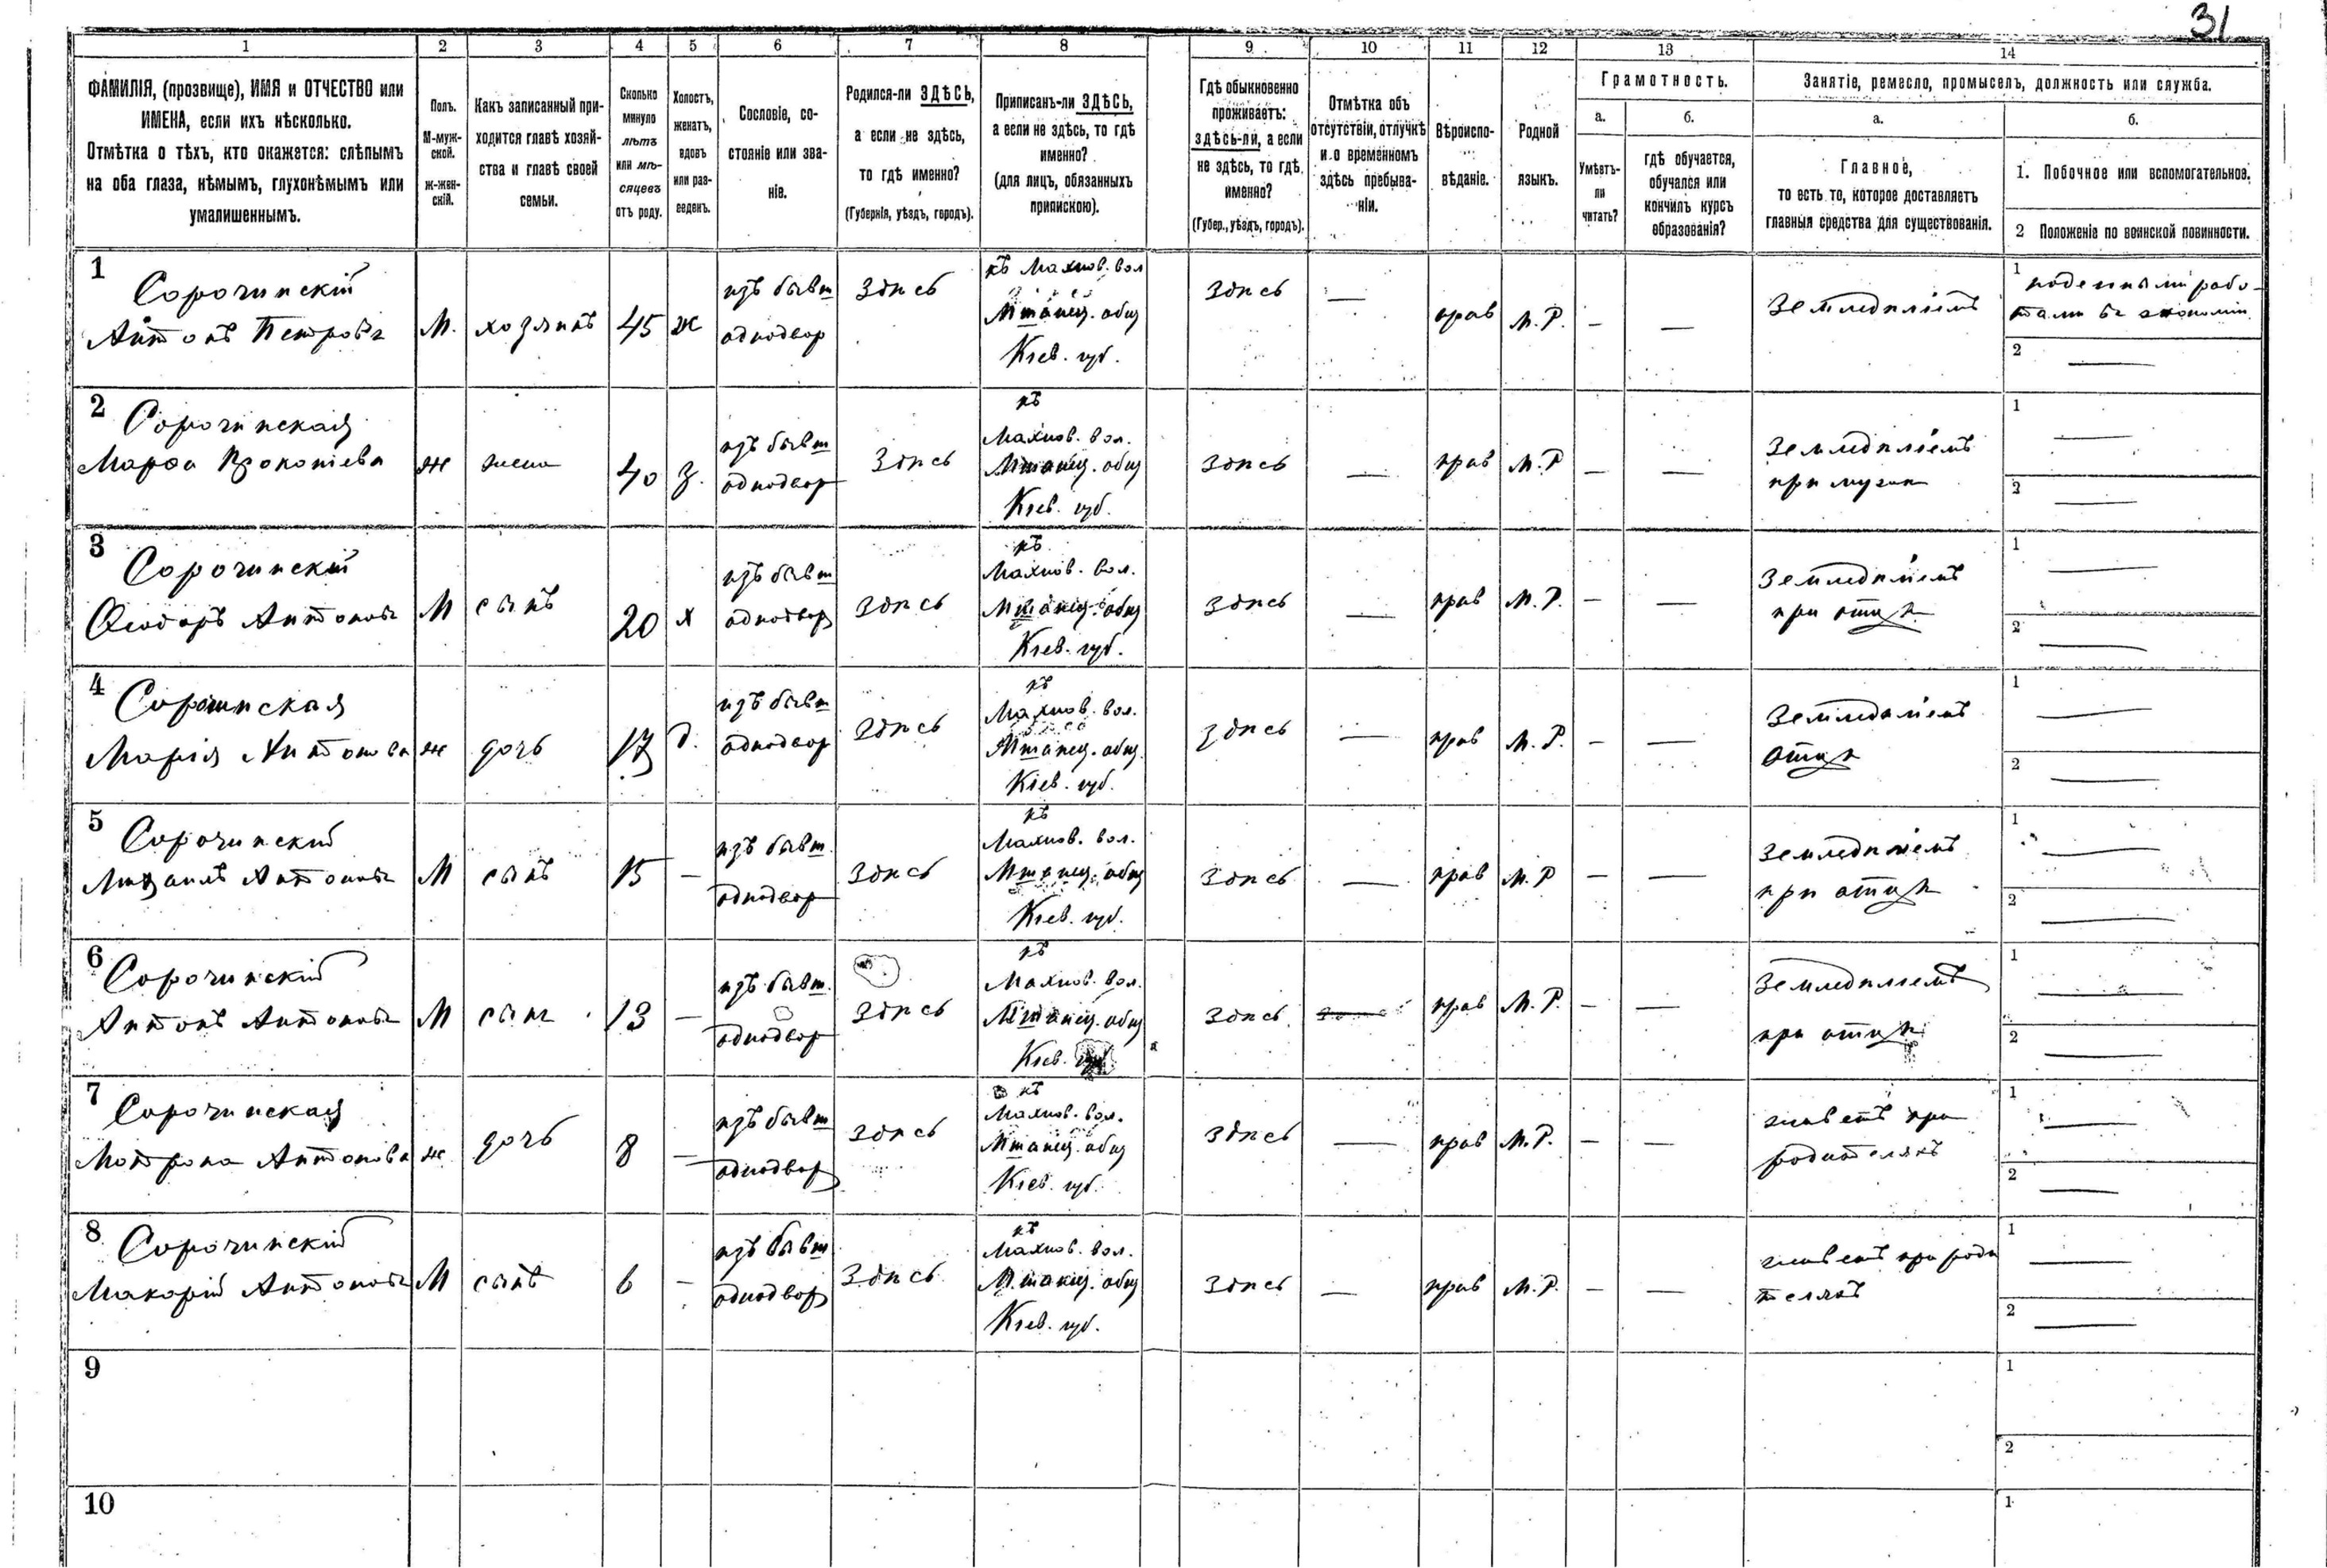 31
1 2 3 4 5 6 7 8 9 10 11 12 13 14
ФАМИЛІЯ, (прозвище), ИМЯ и ОТЧЕСТВО или
ИМЕНА, если ихъ нѣсколько.
Отмѣтка о тѣхъ, кто окажется: слѣпымъ
на оба глаза, нѣмымъ, глухонѣмымъ или
умалишеннымъ.
Полъ.
М-муж-
ской.
ж-жен-
скій.
Какъ записанный при-
ходится главѣ хозяй-
ства и главѣ своей
семьи.
Сколько
минуло
лѣтъ
или мѣ-
сяцевъ
отъ роду.
Холостъ,
женатъ,
вдовъ
или раз-
веденъ.
Сословіе, со-
стояніе или зва-
ніе.
Родился-ли ЗДѢСЬ,
а если не здѣсь,
то гдѣ именно?
(Губернія, уѣздъ, городъ).
Приписанъ-ли ЗДѢСЬ,
а если не здѣсь, то гдѣ
именно?
(для лицъ, обязанныхъ
припискою).
Гдѣ обыкновенно
проживаетъ:
здѣсь-ли, а если
не здѣсь, то гдѣ
именно?
(Губер., уѣздъ, городъ).
Отмѣтка объ
отсутствіи, отлучкѣ
и о временномъ
здѣсь пребыва-
ніи.
Вѣроиспо-
вѣданіе.
Родной
языкъ.
Грамотность.
а.
Умѣетъ-
ли
читать?
б.
гдѣ обучается,
обучался или
кончилъ курсъ
образованія?
Занятіе, ремесло, промыселъ, должность или служба.
а.
Главное,
то есть то, которое доставляетъ
главныя средства для существованія.
б.
1. Побочное или вспомогательное.
2 Положеніе по воинской повинности.
1
Сорочинскій
Антонъ Петровъ
М.
хозяинъ
45
ж
изъ бывш
однодвор
Здѣсь
къ Махнов. вол
Мшанец. общ
Кіев. губ.
Здѣсь
—
прав
М. Р.
—
—
Земледѣліемъ
1 поденными рабо-
тами въ экономіи
2 —
2
Сорочинская
Марфа Прокопіева
ж
жена
40
з.
изъ бывш
однодвор
Здѣсь
къ
Махнов. вол.
Мшанец. общ
Кіев. губ.
Здѣсь
—
прав
М. Р
—
—
Земледѣліемъ
при мужѣ
1 —
2 —
3
Сорочинскій
Ѳеодоръ Антоновъ
М
сынъ
20
х
изъ бывш
однодвор
Здѣсь
къ
Махнов. вол.
Мшанец. общ
Кіев. губ.
Здѣсь
—
прав
М. Р.
—
—
Земледѣліемъ
при отцѣ
1 —
2 —
4
Сорочинская
Марія Антонова
ж
дочь
17
д.
изъ бывш
однодвор
Здѣсь
къ
Махнов. вол.
Мшанец. общ
Кіев. губ.
Здѣсь
—
прав
М. Р.
—
—
Земледѣліемъ
отцѣ
1 —
2 —
5
Сорочинскій
Михаилъ Антоновъ
М
сынъ
15
—
изъ бывш.
однодвор
Здѣсь
къ
Махнов. вол.
Мшанец. общ
Кіев. губ.
Здѣсь
—
прав
М. Р
—
—
Земледѣліемъ
при отцѣ
1 —
2 —
6
Сорочинскій
Антонъ Антоновъ
М
сынъ
13
—
изъ бывш.
однодвор
Здѣсь
къ
Махнов. вол.
Мшанец. общ
Кіев. губ
Здѣсь
прав
М. Р.
—
—
Земледѣліемъ
при отцѣ
1 —
2 —
7
Сорочинская
Мотрона Антонова
ж
дочь
8
—
изъ бывш
однодвор
Здѣсь
къ
Махнов. вол.
Мшанец. общ
Кіев. губ.
Здѣсь
—
прав
М. Р.
—
—
живетъ при
родителяхъ
1 —
2 —
8
Сорочинскій
Макарій Антоновъ
М
сынъ
6
—
изъ бывш
однодвор
Здѣсь
къ
Махнов. вол.
Мшанец. общ
Кіев. губ.
Здѣсь
—
прав
М. Р.
—
—
живетъ при роди
теляхъ
1 —
2 —
9
1
2
10
1